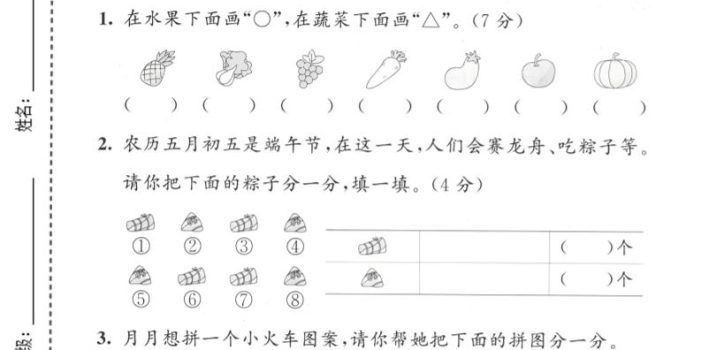 1. 在水果下面画“○”,在蔬菜下面画“△”。(7 分)
( ) ( ) ( ) ( ) ( ) ( ) ( )
姓名:
2. 农历五月初五是端午节,在这一天,人们会赛龙舟、吃粽子等。
请你把下面的粽子分一分,填一填。(4 分)
① ② ③ ④
( )个
( )个
⑤ ⑥ ⑦ ⑧
级:
3. 月月想拼一个小火车图案,请你帮她把下面的拼图分一分。